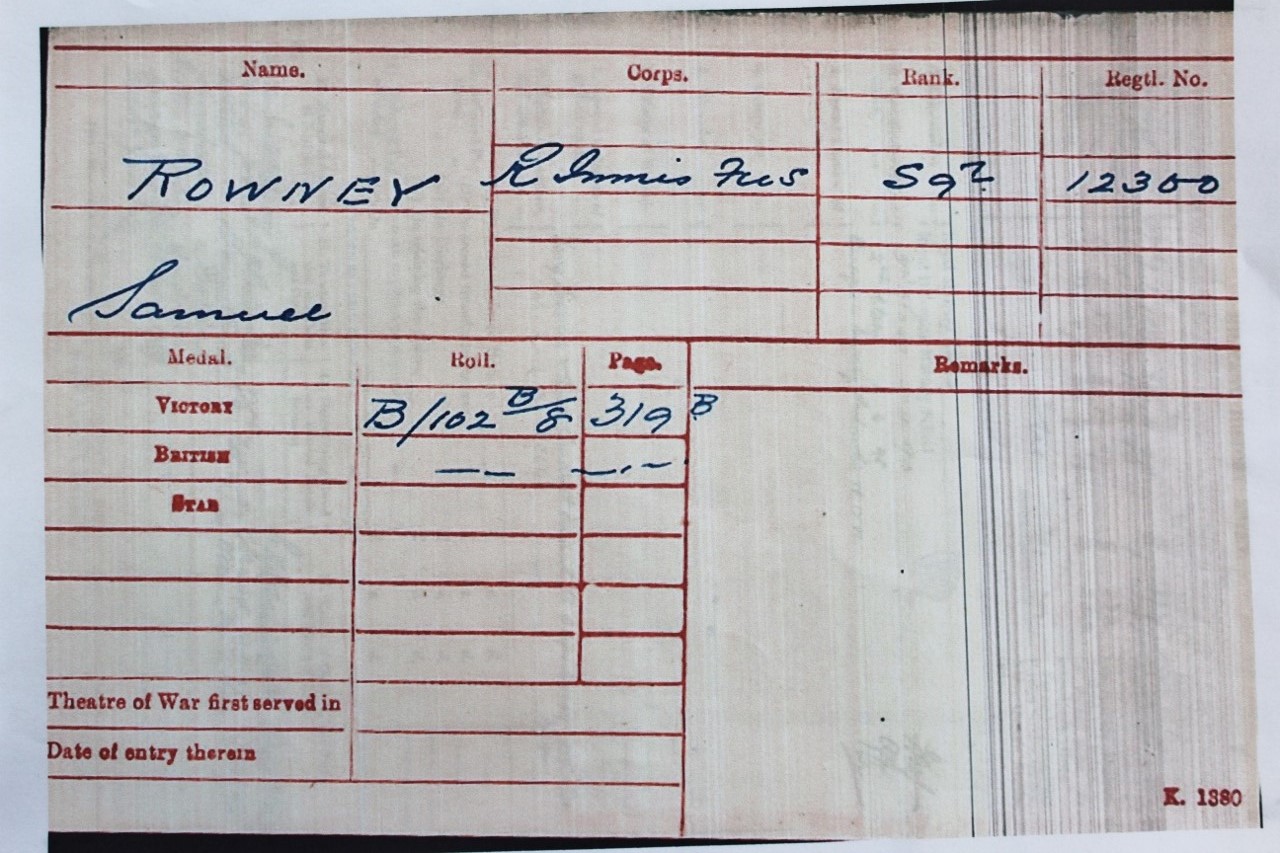 Name. Corps. Rank. Regtl. No.
ROWNEY R Innis Fus Sgt 12300
Samuel
Medal. Roll. Page. Remarks.
VICTORY B/102 B/8 319 B
BRITISH — — — . —
STAR
Theatre of War first served in
Date of entry therein
K. 1380